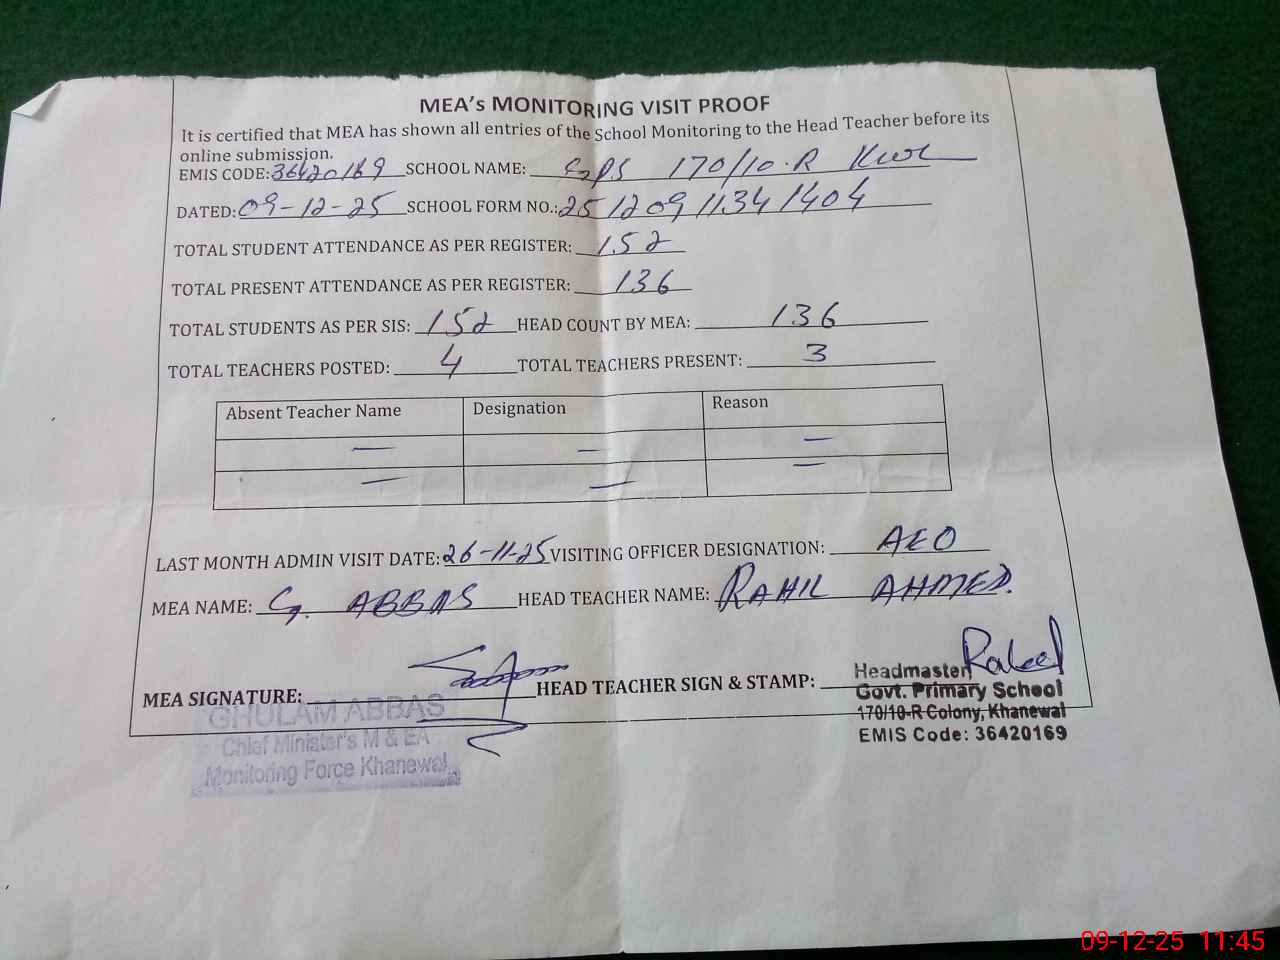 MEA's MONITORING VISIT PROOF
It is certified that MEA has shown all entries of the School Monitoring to the Head Teacher before its
online submission.
EMIS CODE: 36420169 SCHOOL NAME: GPS 170/10-R Kwl
DATED: 09-12-25 SCHOOL FORM NO.: 25120911341404
TOTAL STUDENT ATTENDANCE AS PER REGISTER: 152
TOTAL PRESENT ATTENDANCE AS PER REGISTER: 136
TOTAL STUDENTS AS PER SIS: 152 HEAD COUNT BY MEA: 136
TOTAL TEACHERS POSTED: 4 TOTAL TEACHERS PRESENT: 3
Absent Teacher Name Designation Reason
— — —
— — —
LAST MONTH ADMIN VISIT DATE: 26-11-25 VISITING OFFICER DESIGNATION: AEO
MEA NAME: G. ABBAS HEAD TEACHER NAME: RAHIL AHMED.
MEA SIGNATURE: HEAD TEACHER SIGN & STAMP:
GHULAM ABBAS
Chief Minister's M & EA
Monitoring Force Khanewal
Headmaster
Govt. Primary School
170/10-R Colony, Khanewal
EMIS Code: 36420169
09-12-25 11:45